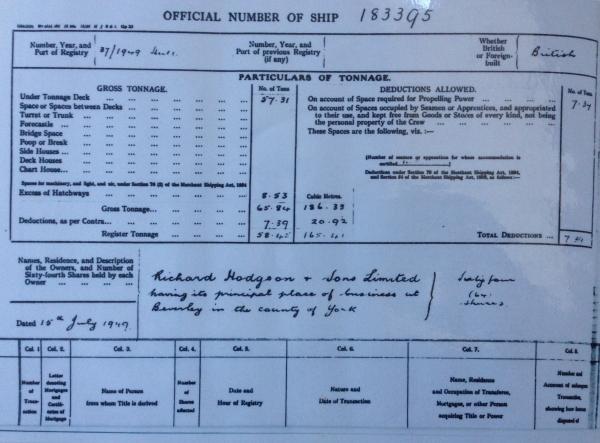 OFFICIAL NUMBER OF SHIP 183395
Number, Year, and Port of Registry
37/1949 Hull.
Number, Year, and Port of previous Registry (if any)
Whether British or Foreign-built
British
PARTICULARS OF TONNAGE.
GROSS TONNAGE. No. of Tons
Under Tonnage Deck ... 57.31
Space or Spaces between Decks
Turret or Trunk
Forecastle
Bridge Space
Poop or Break
Side Houses
Deck Houses
Chart House
Spaces for machinery, and light, and air, under Section 78 (2) of the Merchant Shipping Act, 1894
Excess of Hatchways ... 8.53 Cubic Metres.
Gross Tonnage... 65.84 186.33
Deductions, as per Contra... 7.39 20.92
Register Tonnage ... 58.45 165.41
DEDUCTIONS ALLOWED. No. of Tons
On account of Space required for Propelling Power
On account of Spaces occupied by Seamen or Apprentices, and appropriated to their use, and kept free from Goods or Stores of every kind, not being the personal property of the Crew ... 7.39
These Spaces are the following, viz. :—
(Number of seamen or apprentices for whom accommodation is certified )
Deductions under Section 79 of the Merchant Shipping Act, 1894, and Section 54 of the Merchant Shipping Act, 1906, as follows :—
TOTAL DEDUCTIONS ... 7.39
Names, Residence, and Description of the Owners, and Number of Sixty-fourth Shares held by each Owner
Richard Hodgson & Sons Limited
having its principal place of business at
Beverley in the county of York
Sixty four
(64)
shares
Dated 15th July 1949.
Col. 1 Col. 2. Col. 3. Col. 4. Col. 5. Col. 6. Col. 7. Col. 8.
Number of Transaction
Letter denoting Mortgages and Certificates of Mortgage
Name of Person from whom Title is derived
Number of Shares affected
Date and Hour of Registry
Nature and Date of Transaction
Name, Residence and Occupation of Transferee, Mortgagee, or other Person acquiring Title or Power
Number and Account of subsequent Transaction, showing how Interest disposed of